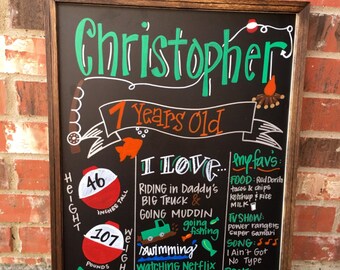 Christopher
7 Years Old
HEIGHT
46
INCHES TALL
107
POUNDS
I LOVE...
RIDING in Daddy's
BIG TRUCK &
GOING MUDDIN
going
fishing
swimming
Watching Netflix
my favs:
FOOD: Red Devils
tacos & chips
ketchup & rice
MILK
TV SHOW:
power rangers
super samurai
SONG:
I Ain't Got
No Type